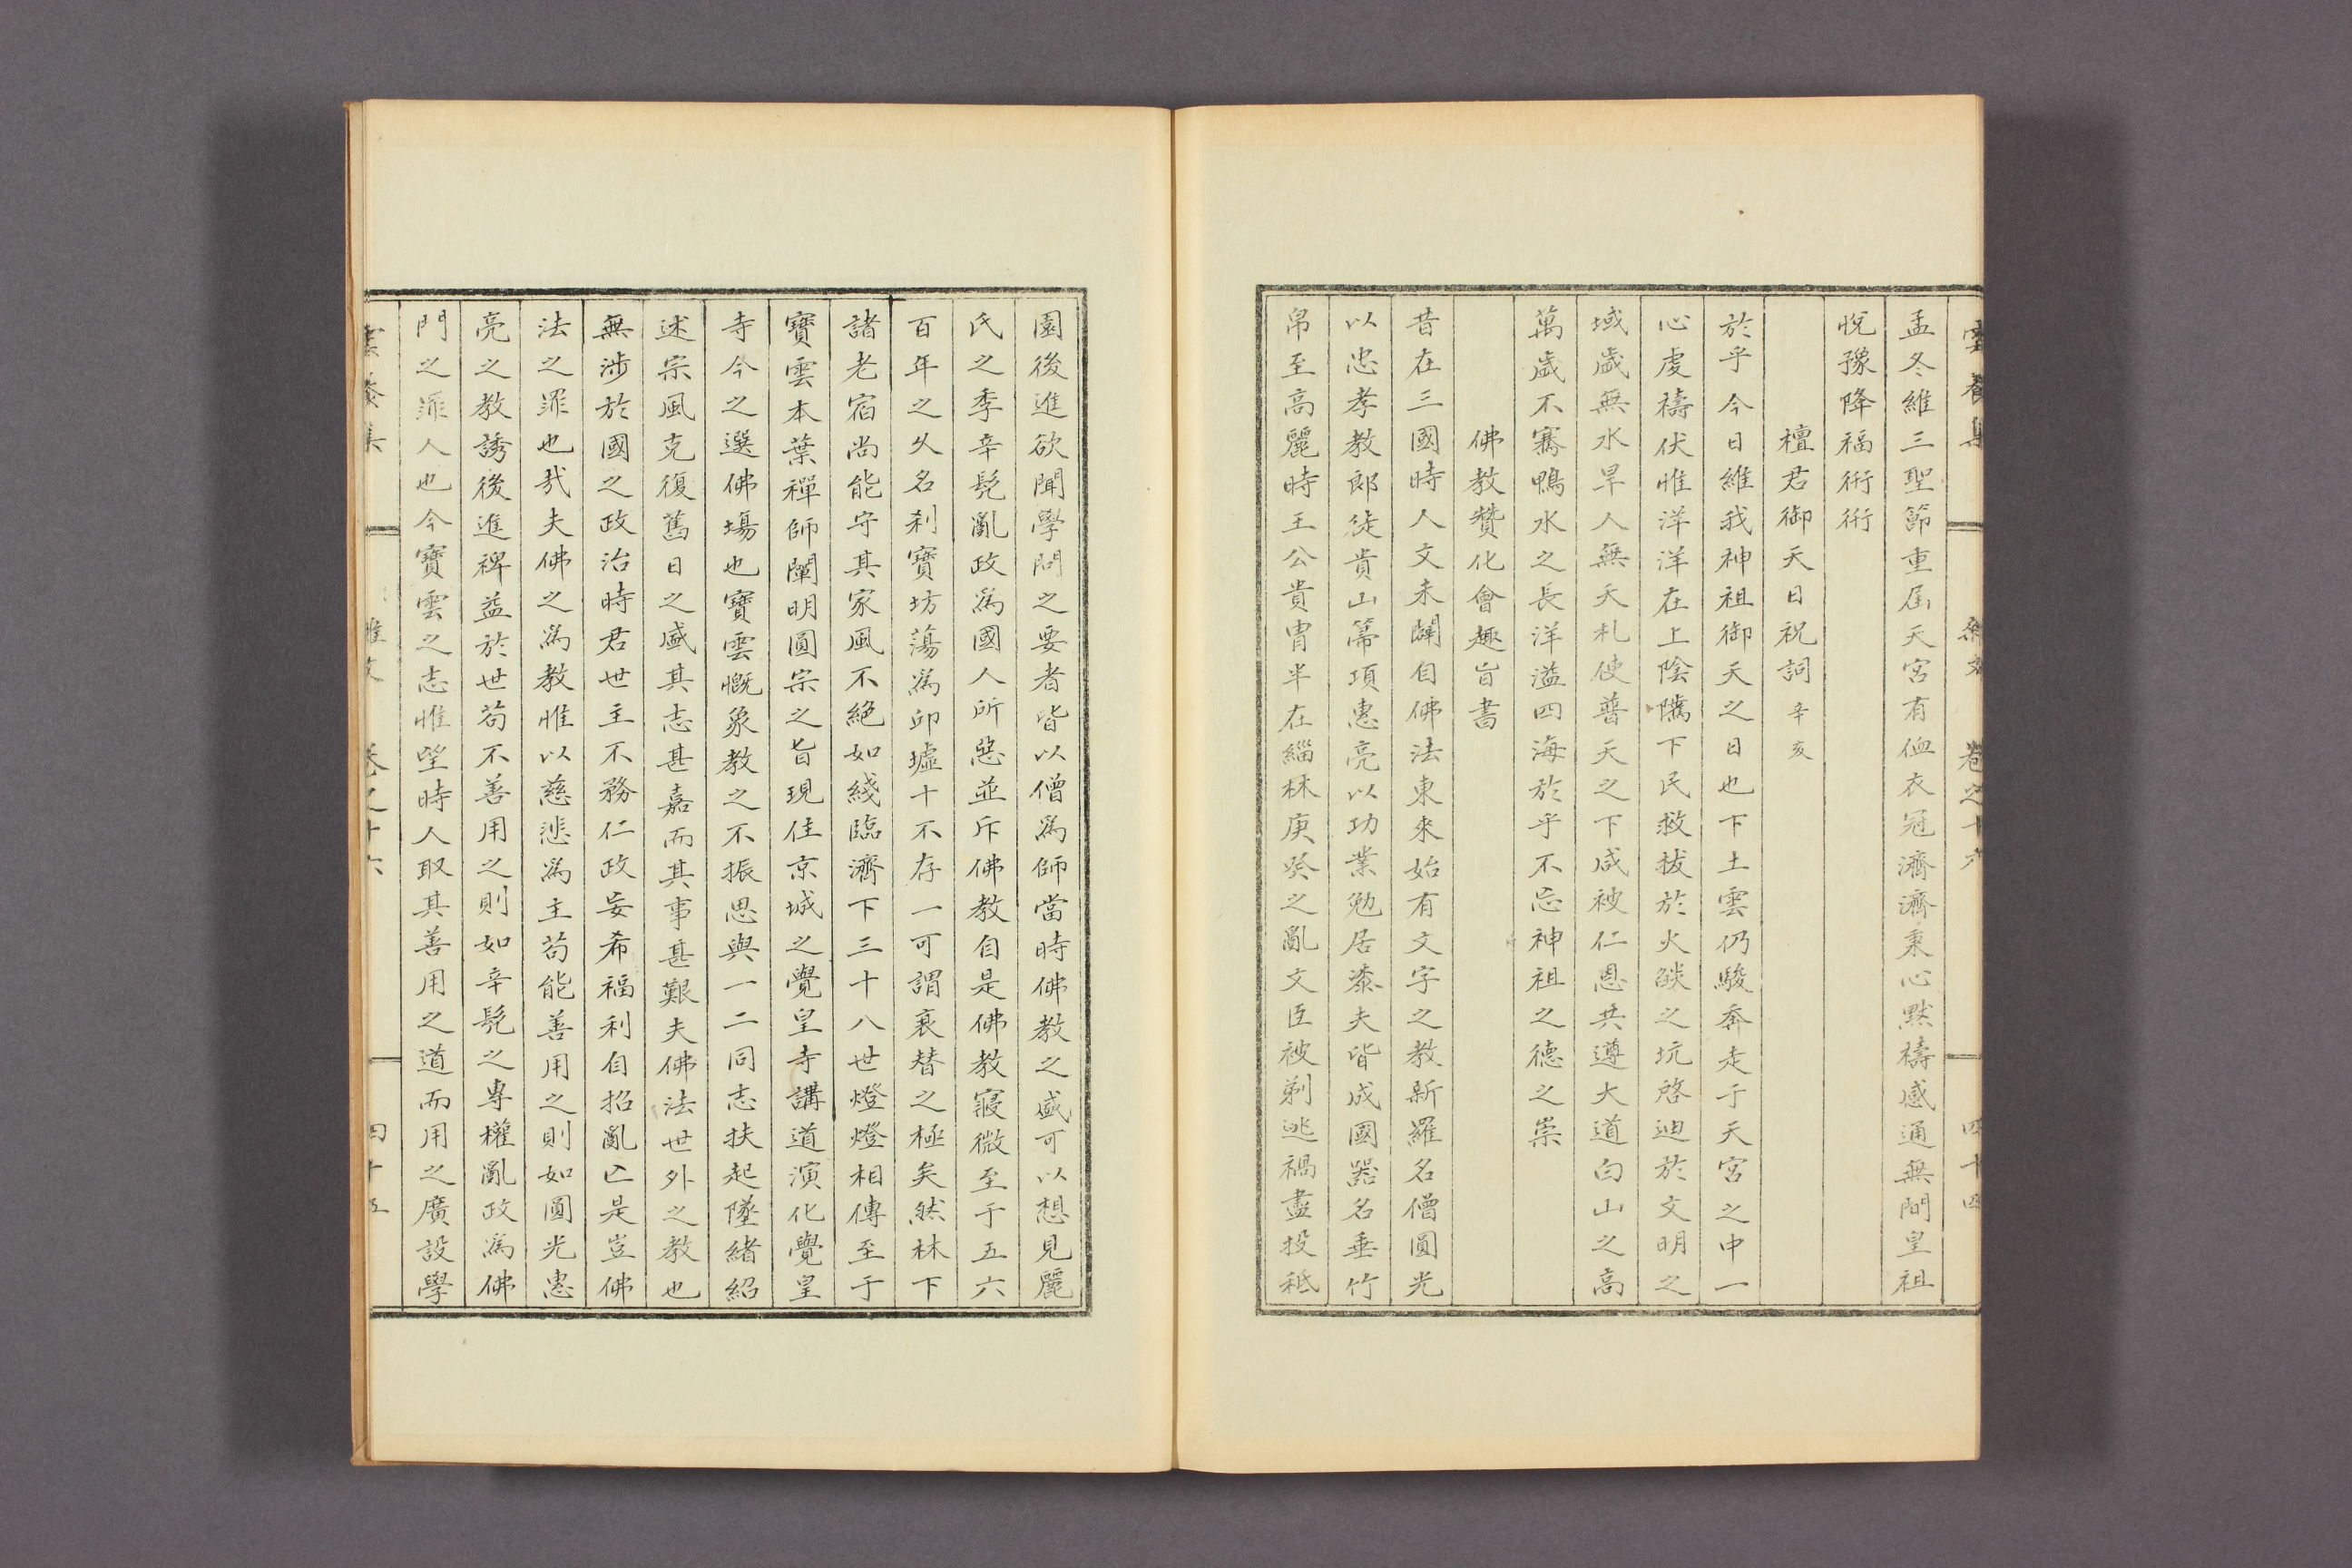 雲養集 雜文 卷之十六 四十四
孟冬維三聖節重屆天宮有侐衣冠濟濟秉心黙禱感通無間皇祖
悅豫降福衎衎
檀君御天日祝詞 辛亥
於乎今日維我神祖御天之日也下土雲仍駿奔走于天宮之中一
心虔禱伏惟洋洋在上陰隲下民救拔於火燄之坑啓迪於文明之
域歲無水旱人無夭札使普天之下咸被仁恩共遵大道白山之高
萬歲不騫鴨水之長洋溢四海於乎不忘神祖之德之崇
佛教贊化會趣旨書
昔在三國時人文未闢自佛法東來始有文字之教新羅名僧圓光
以忠孝教郞徒貴山箒項惠亮以功業勉居漆夫皆成國器名垂竹
帛至高麗時王公貴冑半在緇林庚癸之亂文臣被剃逃禍盡投秪
園後進欲聞學問之要者皆以僧爲師當時佛教之盛可以想見麗
氏之季辛髡亂政爲國人所惡並斥佛教自是佛教寢微至于五六
百年之久名刹寶坊蕩爲邱墟十不存一可謂衰替之極矣然林下
諸老宿尚能守其家風不絕如綫臨濟下三十八世燈燈相傳至于
寶雲本葉禪師闡明圓宗之旨現住京城之覺皇寺講道演化覺皇
寺今之選佛場也寶雲慨象教之不振思與一二同志扶起墜緒紹
述宗風克復舊日之盛其志甚嘉而其事甚艱夫佛法世外之教也
無涉於國之政治時君世主不務仁政妄希福利自招亂亡是豈佛
法之罪也㦲夫佛之爲教惟以慈悲爲主苟能善用之則如圓光惠
亮之教誘後進裨益於世苟不善用之則如辛髡之專權亂政爲佛
門之罪人也今寶雲之志惟望時人取其善用之道而用之廣設學
雲養集 雜文 卷之十六 四十五